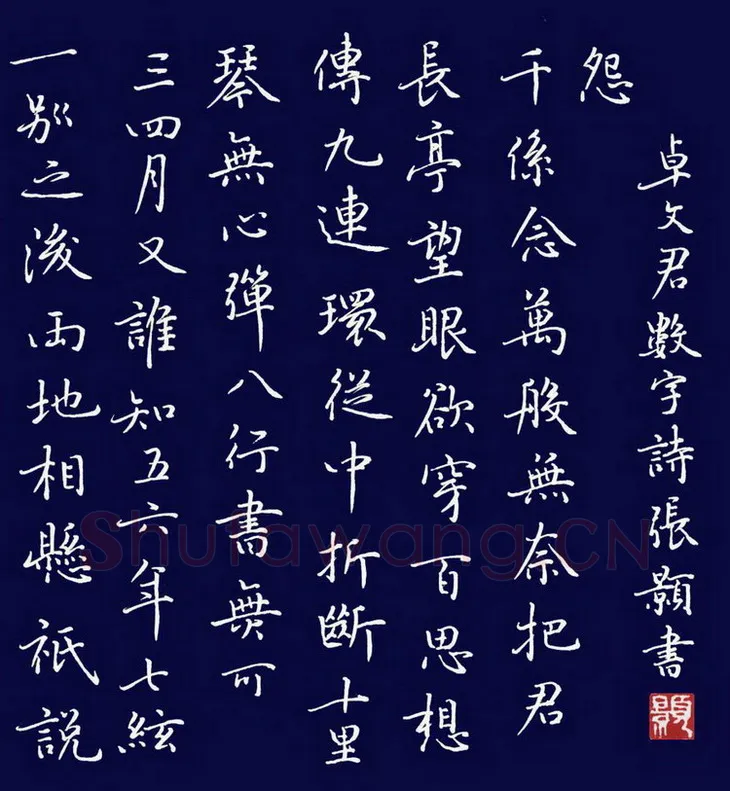 一别之後两地相懸祇説
三四月又誰知五六年七絃
琴無心彈八行書無可
傳九連環從中折斷十里
長亭望眼欲穿百思想
千係念萬般無奈把君
怨
卓文君數字詩張顥書
Shufawang.CN